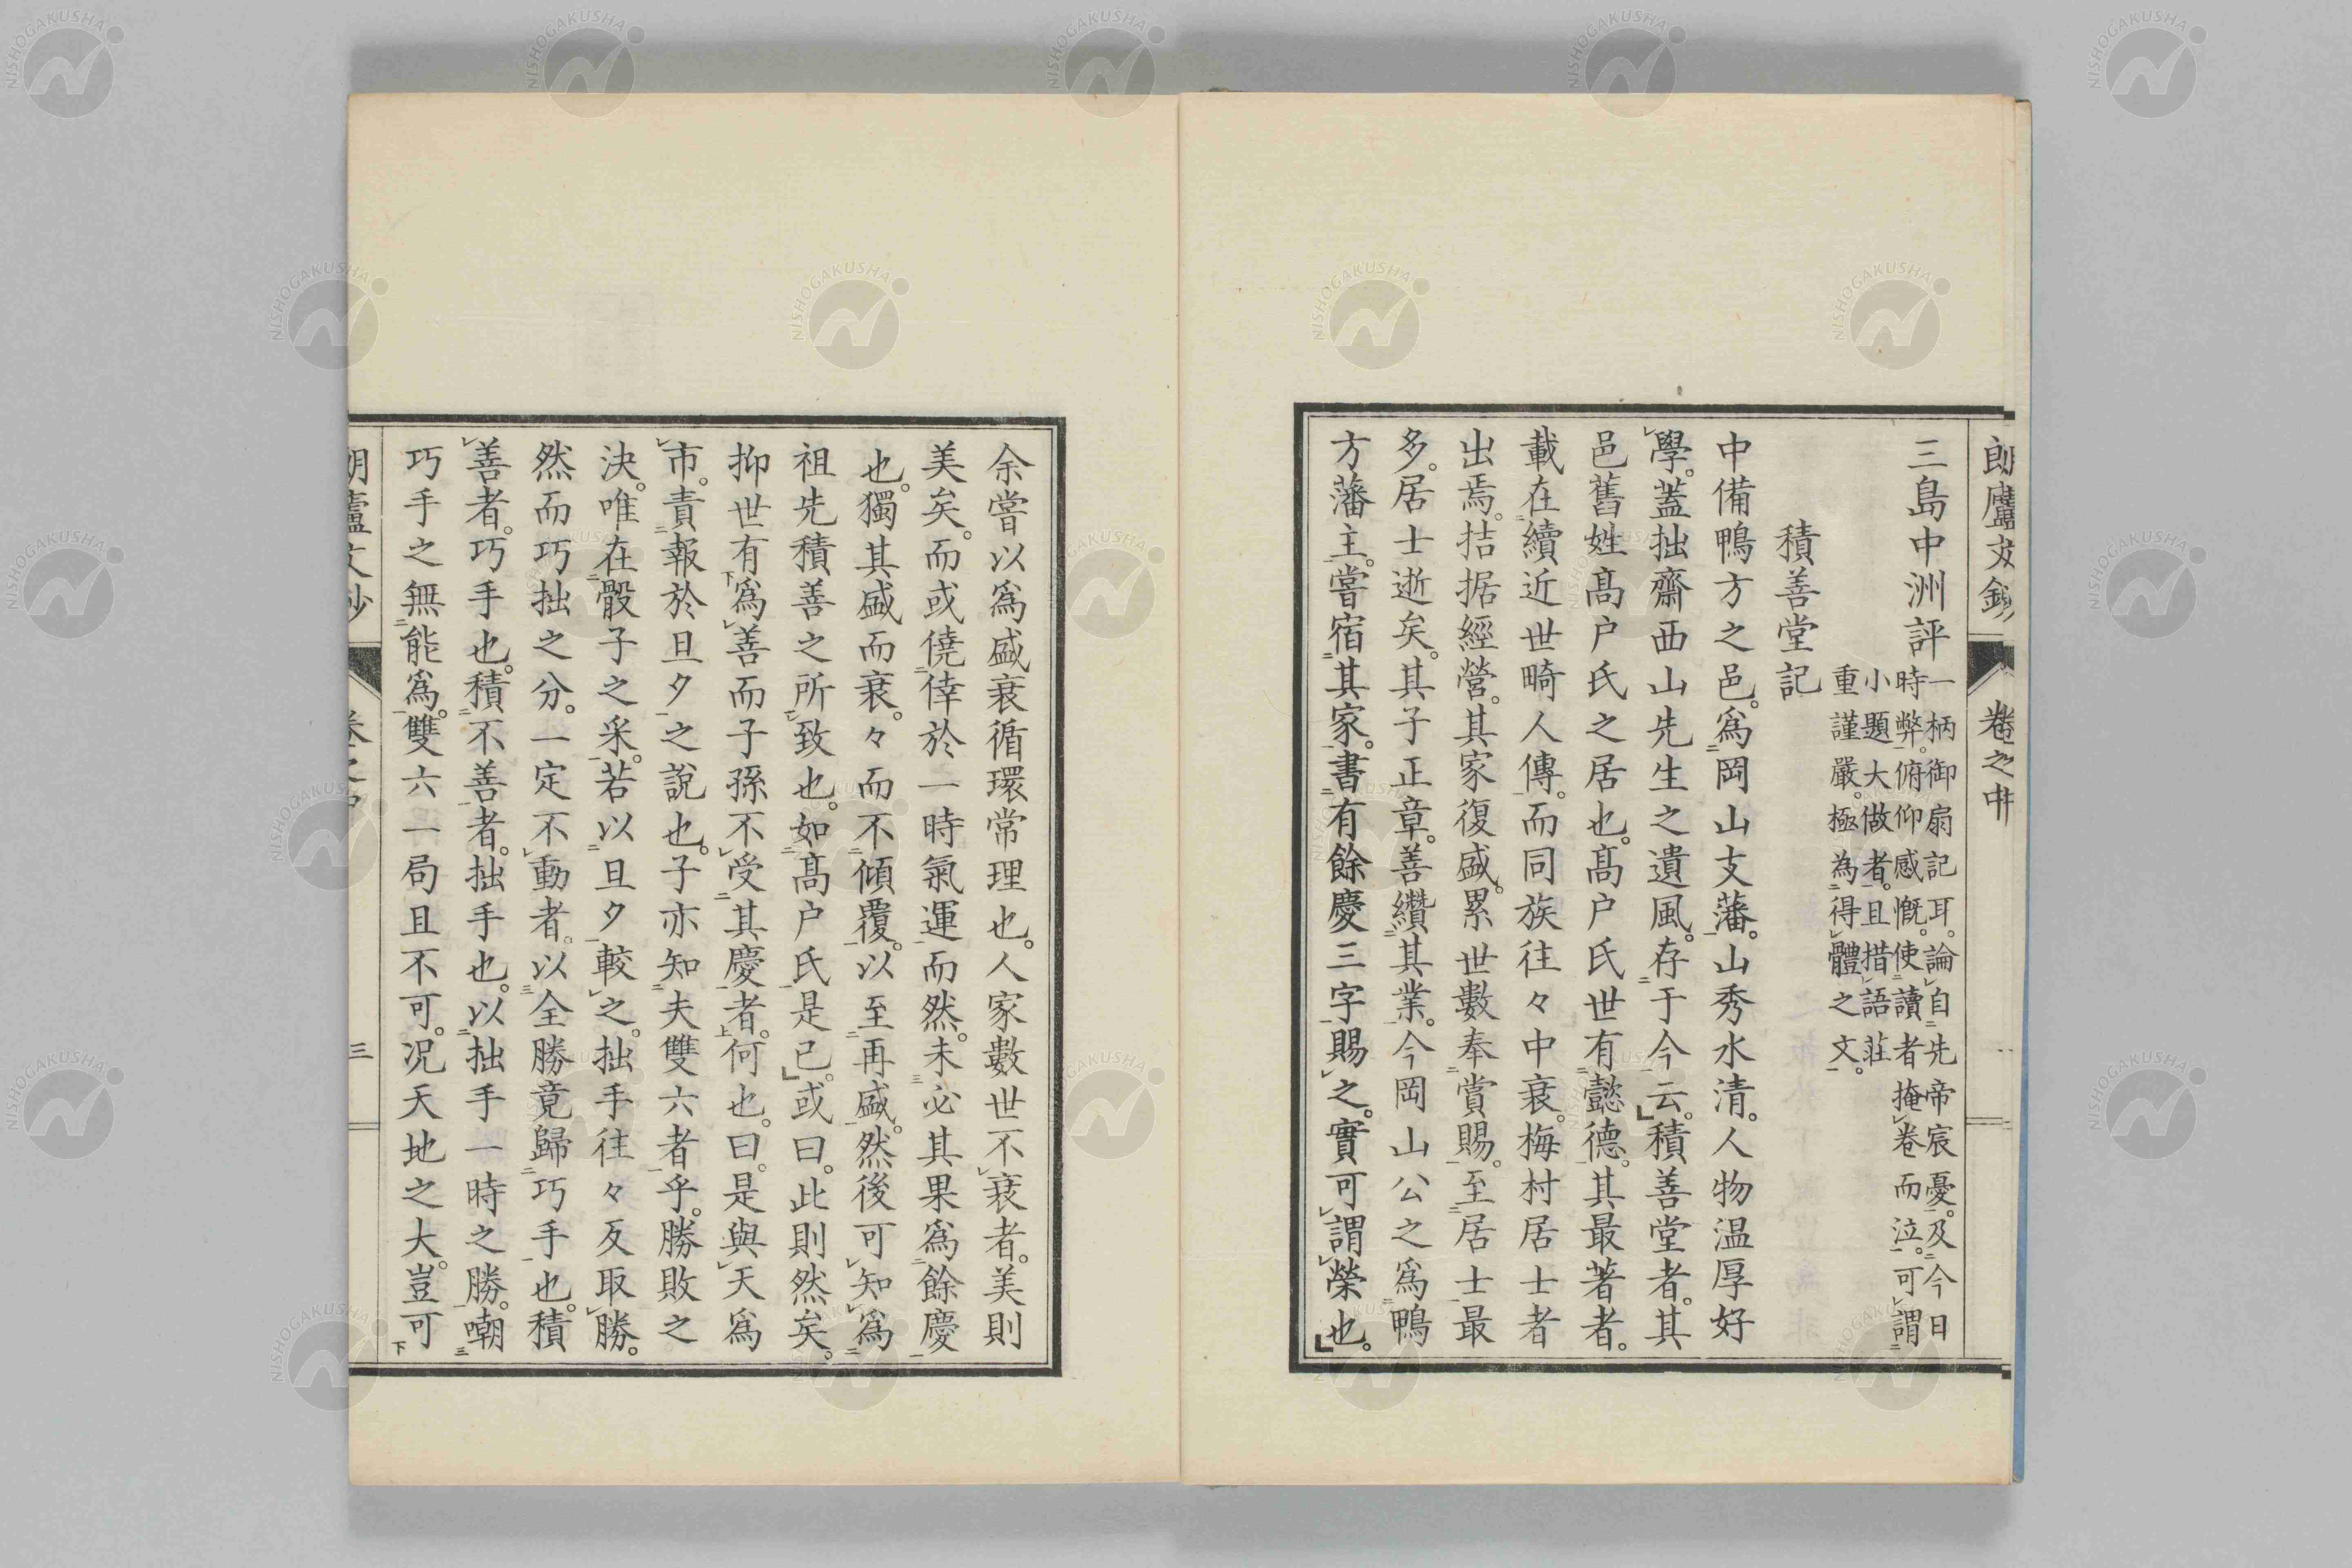 朗廬文鈔 卷之中
三島中洲評
一柄御扇記耳。論自先帝宸憂。及今日
時弊。俯仰感慨。使讀者掩卷而泣。可謂
小題大做者。且措語莊
重謹嚴。極為得體之文。
積善堂記
中備鴨方之邑。爲岡山支藩。山秀水清。人物温厚好
學。蓋拙齋西山先生之遺風。存于今云。積善堂者。其
邑舊姓髙户氏之居也。髙户氏世有懿德。其最著者。
載在續近世畸人傳。而同族往々中衰。梅村居士者
出焉。拮据經營。其家復盛。累世數奉賞賜。至居士最
多。居士逝矣。其子正章。善纘其業。今岡山公之爲鴨
方藩主。嘗宿其家。書有餘慶三字賜之。實可謂榮也。
余嘗以爲盛衰循環常理也。人家數世不衰者。美則
美矣。而或僥倖於一時氣運而然。未必其果爲餘慶
也。獨其盛而衰。々而不傾覆。以至再盛。然後可知爲
祖先積善之所致也。如髙户氏是已。或曰。此則然矣。
抑世有爲善而子孫不受其慶者。何也。曰。是與天爲
市。責報於旦夕之說也。子亦知夫雙六者乎。勝敗之
決。唯在骰子之采。若以旦夕較之。拙手往々反取勝。
然而巧拙之分。一定不動者。以全勝竟歸巧手也。積
善者。巧手也。積不善者。拙手也。以拙手一時之勝。嘲
巧手之無能爲。雙六一局且不可。况天地之大。豈可
朗廬文鈔 卷之中 三